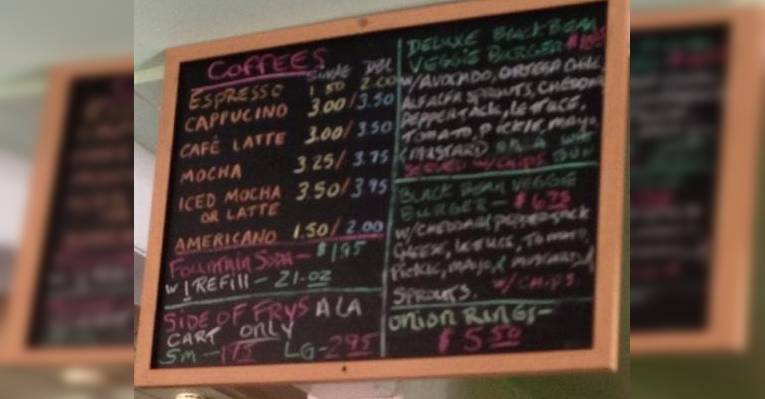 COFFEES
SINGLE DBL
ESPRESSO 1.50 2.00
CAPPUCINO 3.00/3.50
CAFÉ LATTE 3.00/3.50
MOCHA 3.25/3.75
ICED MOCHA 3.50/3.95
OR LATTE
AMERICANO 1.50/2.00
FOUNTAIN SODA - $1.95
W/1 REFILL - 21-OZ
SIDE OF FRYS A LA
CART ONLY
SM - 1.75 LG - 2.95
DELUXE BLACK BEAN
VEGGIE BURGER
W/AVOCADO, ORTEGA CHILI,
ALFALFA SPROUTS, CHEDDAR
PEPPERJACK, LETTUCE,
TOMATO, PICKLE, MAYO,
MUSTARD ON A
SERVED W/CHIPS BUN
BLACK BEAN VEGGIE
BURGER - $6.75
W/CHEDDAR & PEPPERJACK
LETTUCE, TOMATO,
PICKLE, MAYO, & MUSTARD
SPROUTS. W/CHIPS.
ONION RINGS -
$5.50